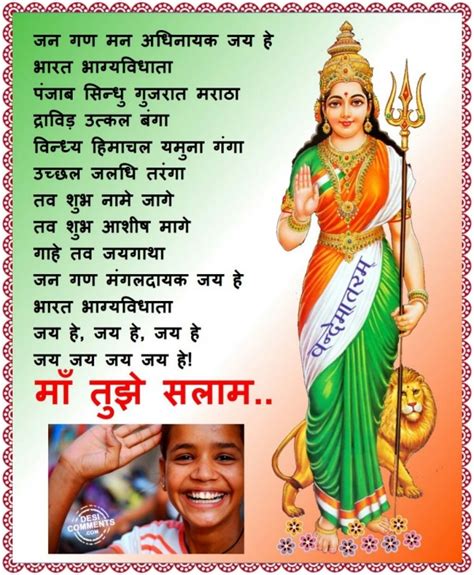 जन गण मन अधिनायक जय हे
भारत भाग्यविधाता
पंजाब सिन्धु गुजरात मराठा
द्राविड़ उत्कल बंगा
विन्ध्य हिमाचल यमुना गंगा
उच्छल जलधि तरंगा
तव शुभ नामे जागे
तव शुभ आशीष मागे
गाहे तव जयगाथा
जन गण मंगलदायक जय हे
भारत भाग्यविधाता
जय हे, जय हे, जय हे
जय जय जय जय हे!
माँ तुझे सलाम..
वन्देमातरम्
DESI
COMMENTS
.COM